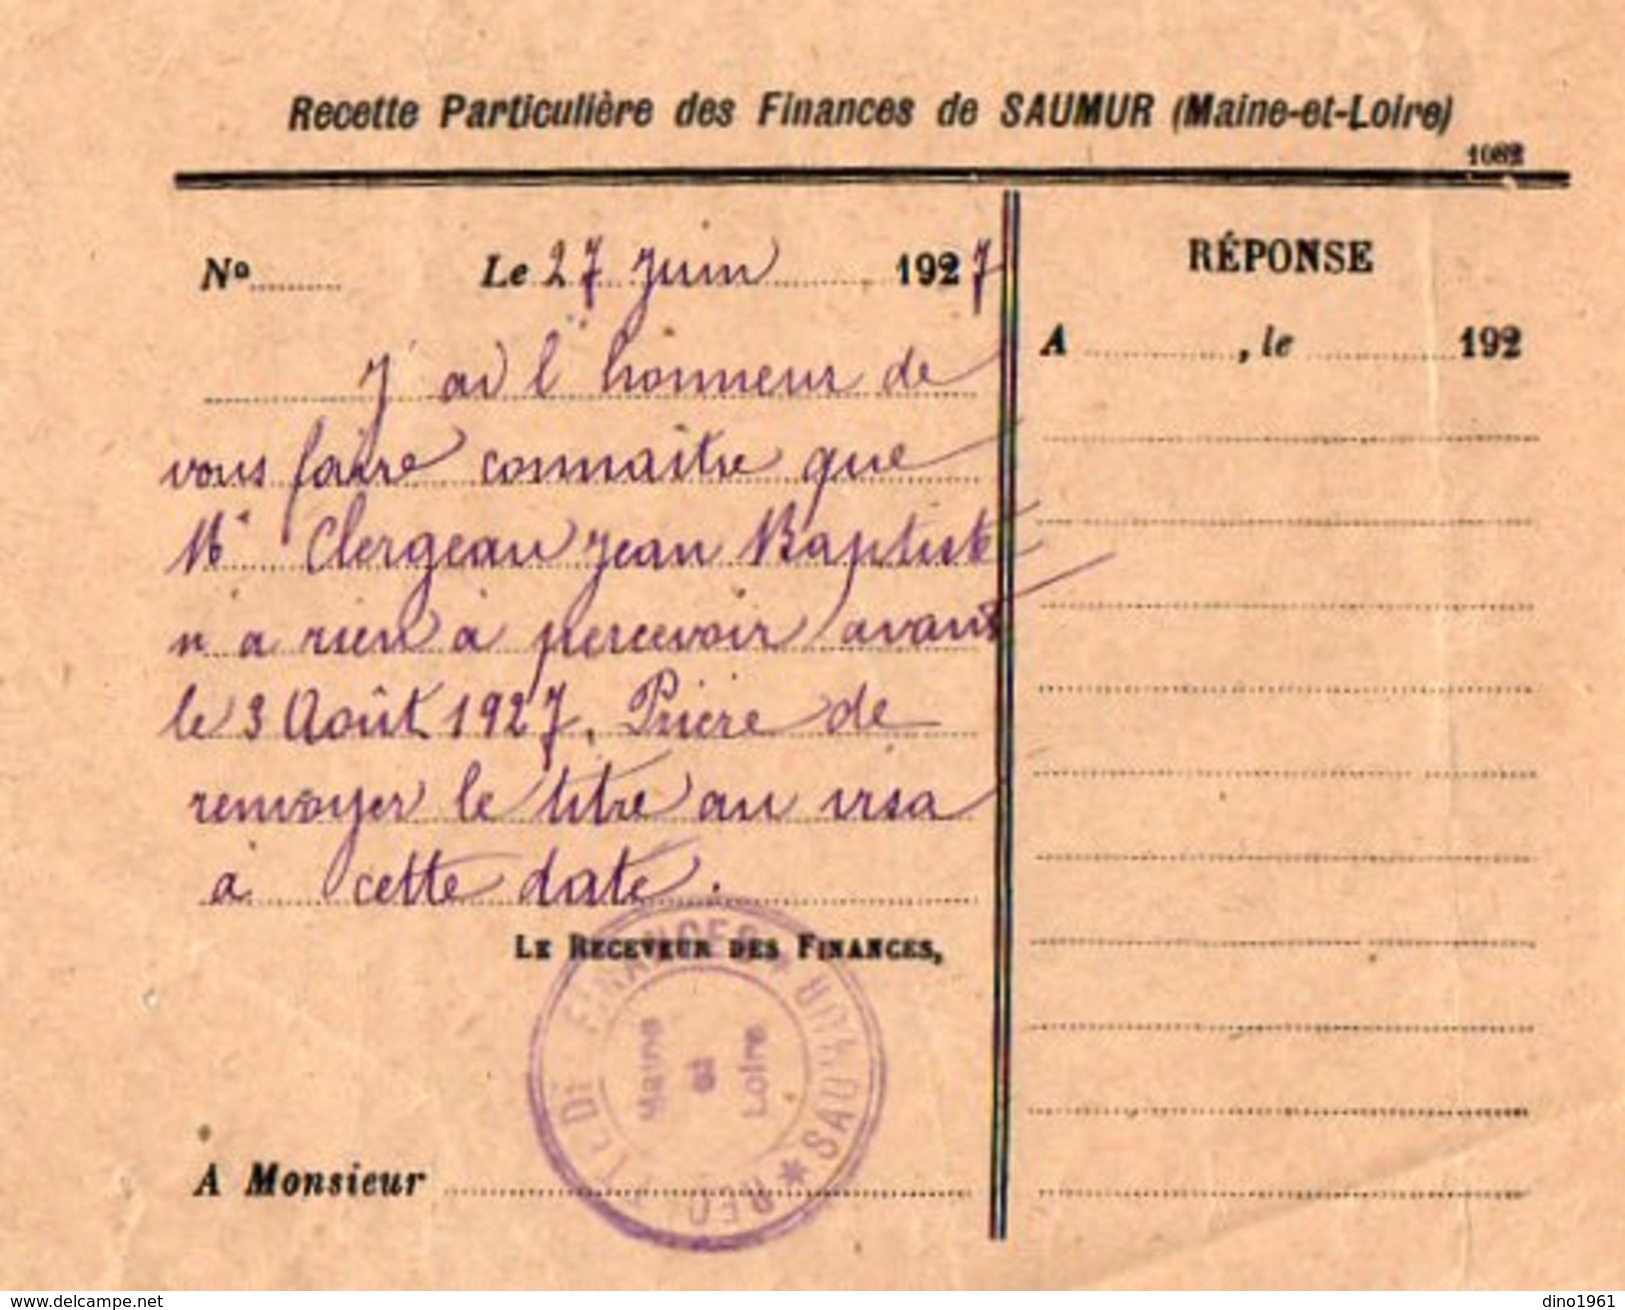 Recette Particulière des Finances de SAUMUR (Maine-et-Loire)
1082
Nº
Le 27 Juin 1927
J'ai l'honneur de
vous faire connaître que
Mr Clergeau Jean Baptiste
n'a rien à percevoir avant
le 3 Août 1927. Prière de
renvoyer le titre au visa
à cette date.
LE RECEVEUR DES FINANCES,
RECETTE DE FINANCES * SAUMUR *
Maine
et
Loire
A Monsieur
RÉPONSE
A , le 192
www.delcampe.net
dino1961